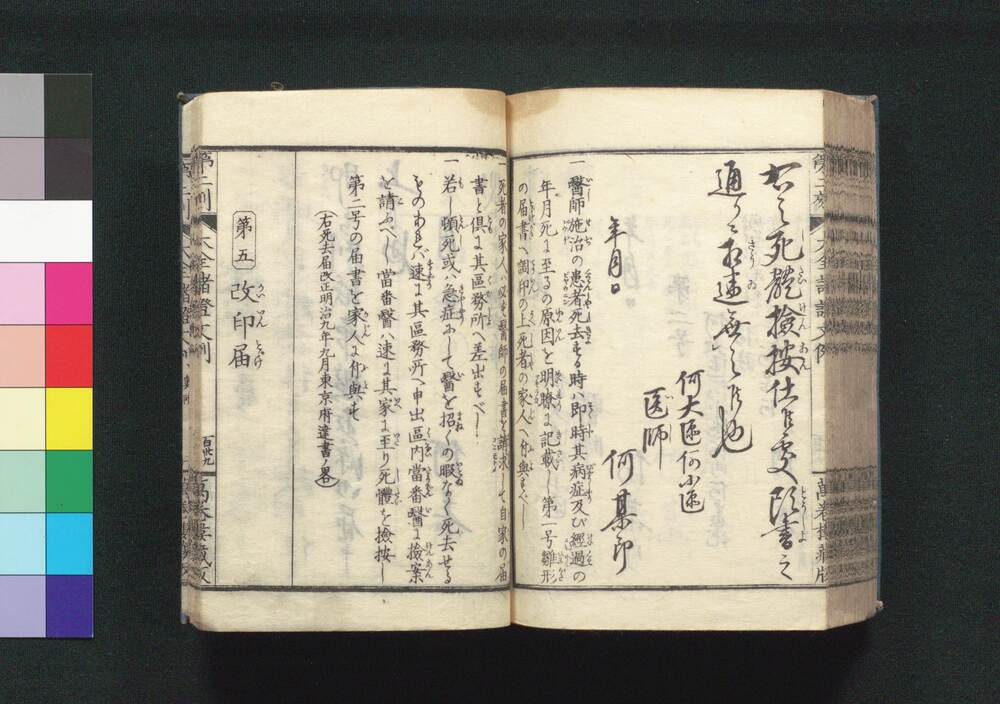 右之死體撿按仕候處頭書之
通り相違無之候也
年月日
何大區何小區
医師
何某印
一醫師施治の患者死去する時ハ即時其病症及び經過の
年月死に至るの原因を明瞭に記載し第一号雛形
の届書へ調印の上死者の家人へ付與すべし
一死者の家人ハ必ず醫師の届書を請求して自家の届
書と倶に其區務所へ差出すべし
一若し頓死或ハ急症にして醫を招くの暇なく死去せる
ものあれバ速に其區務所へ申出區内當番醫に撿案
を請ふべし當番醫ハ速に其家に至り死體を撿按し
第二号の届書を家人に付與す
(右死去届改正明治九年九月東京府達書ノ畧)
第五
改印届
百廿九
萬春樓藏版